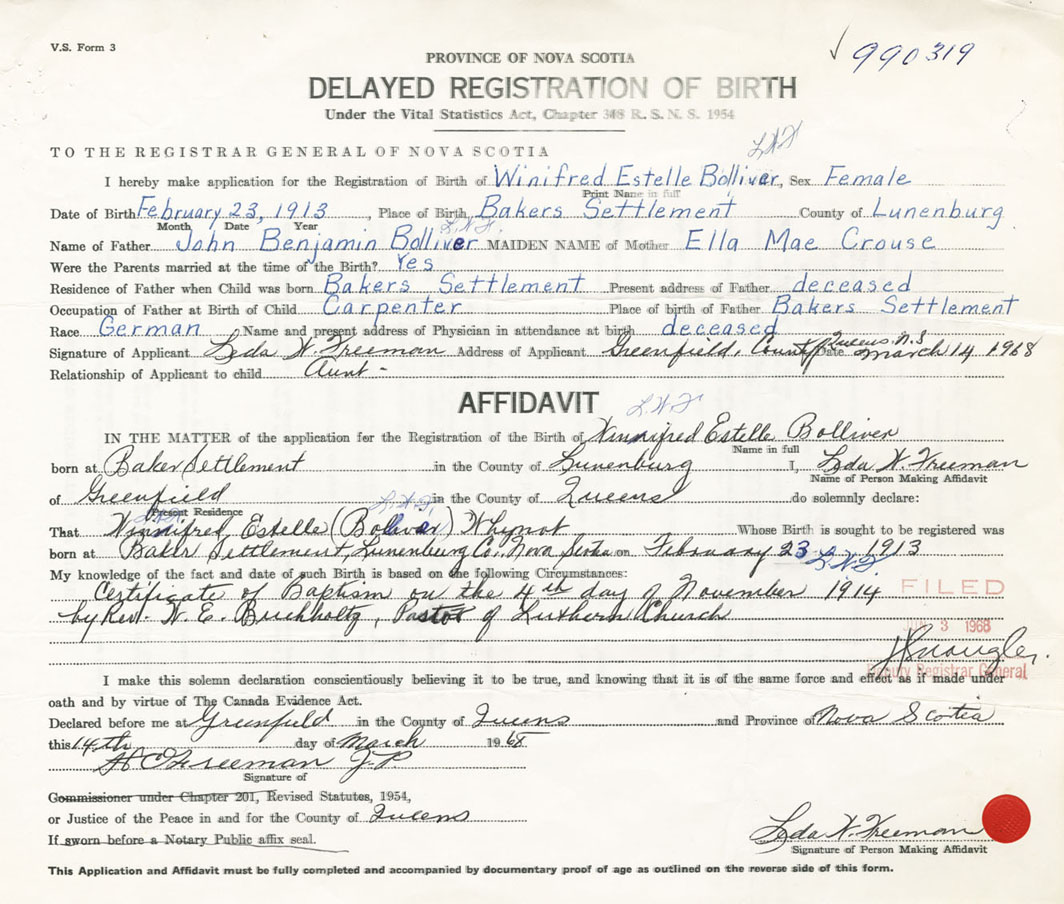 V.S. Form 3
990319
PROVINCE OF NOVA SCOTIA
DELAYED REGISTRATION OF BIRTH
Under the Vital Statistics Act, Chapter 348 R. S. N. S. 1954
TO THE REGISTRAR GENERAL OF NOVA SCOTIA
L.W.F
I hereby make application for the Registration of Birth of Winifred Estelle Bolliver, Sex Female
Print Name in full
Date of Birth February 23, 1913, Place of Birth Bakers Settlement County of Lunenburg
Month Date Year
L.W.F.
Name of Father John Benjamin Bolliver MAIDEN NAME of Mother Ella Mae Crouse
Were the Parents married at the time of the Birth? Yes
Residence of Father when Child was born Bakers Settlement Present address of Father deceased
Occupation of Father at Birth of Child Carpenter Place of birth of Father Bakers Settlement
Race German Name and present address of Physician in attendance at birth deceased
Signature of Applicant Leda W. Freeman Address of Applicant Greenfield, County Queens N.S Date March 14 1968
Relationship of Applicant to child Aunt -
AFFIDAVIT
L.W.F
IN THE MATTER of the application for the Registration of the Birth of Winnifred Estelle Bolliver
Name in full
born at Baker Settlement in the County of Lunenburg I, Leda W. Freeman
Name of Person Making Affidavit
of Greenfield in the County of Queens do solemnly declare:
Present Residence
L.W.F.
That Winnifred Estelle (Bolliver) Whynot Whose Birth is sought to be registered was
born at Baker Settlement, Lunenburg Co. Nova Scotia on February 23 1913
L.W.F
My knowledge of the fact and date of such Birth is based on the following Circumstances:
Certificate of Baptism on the 4th day of November 1914
by Rev. W. E. Buchholtz, Pastor of Luthern Church
FILED
3 1968
Deputy Registrar General
I make this solemn declaration conscientiously believing it to be true, and knowing that it is of the same force and effect as if made under
oath and by virtue of The Canada Evidence Act.
Declared before me at Greenfield in the County of Queens and Province of Nova Scotia
this 14th day of March 1968
H C Freeman J.P
Signature of
Commissioner under Chapter 201, Revised Statutes, 1954,
or Justice of the Peace in and for the County of Queens
If sworn before a Notary Public affix seal.
Leda W. Freeman
Signature of Person Making Affidavit
This Application and Affidavit must be fully completed and accompanied by documentary proof of age as outlined on the reverse side of this form.